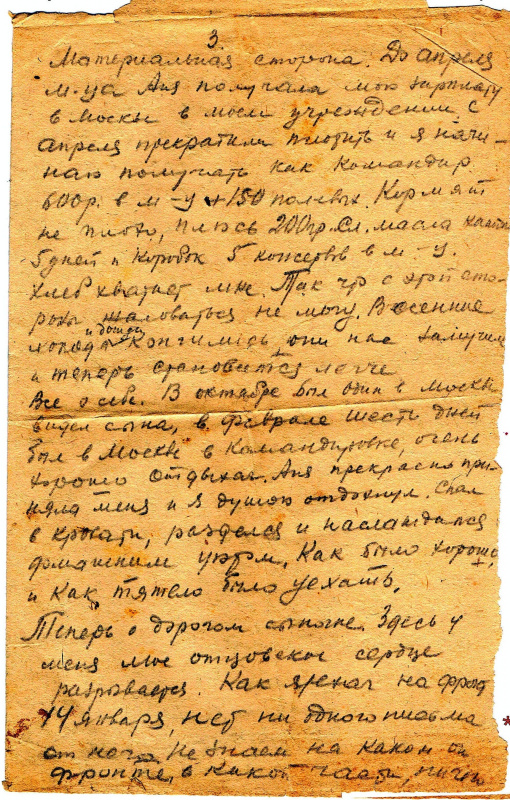 3.
Материальная сторона. До апреля
м-ца Аня получала мою зарплату
в Москве в моем учреждении. С
апреля прекратили платить и я начи-
наю получать как командир
600р. в м-ц + 150 полевых. Кормят
не плохо, плюсь 200гр. сл. масла каждые
5 дней и коробок 5 консервов в м-ц.
Хлеб хватает мне. Так что с этой сто-
роны жаловаться не могу. Весенние
холода и дожди кончились, они нас замучили
и теперь становится легче
Все о себе. В октябре был один в Москве
видел сына, в феврале шесть дней
был в Москве в командировке, очень
хорошо отдыхал. Аня прекрасно при-
няла меня и я душою отдохнул. Спал
в кровати, разделся и наслаждался
домашним уютом. Как было хорошо,
и как тяжело было уехать.
Теперь о дорогом сыночке. Здесь у
меня мое отцовское сердце
разрывается. Как уехал на фронт
14 января, нет ни одного письма
от него. Не знаем на каком он
фронте, в какой части, ничего